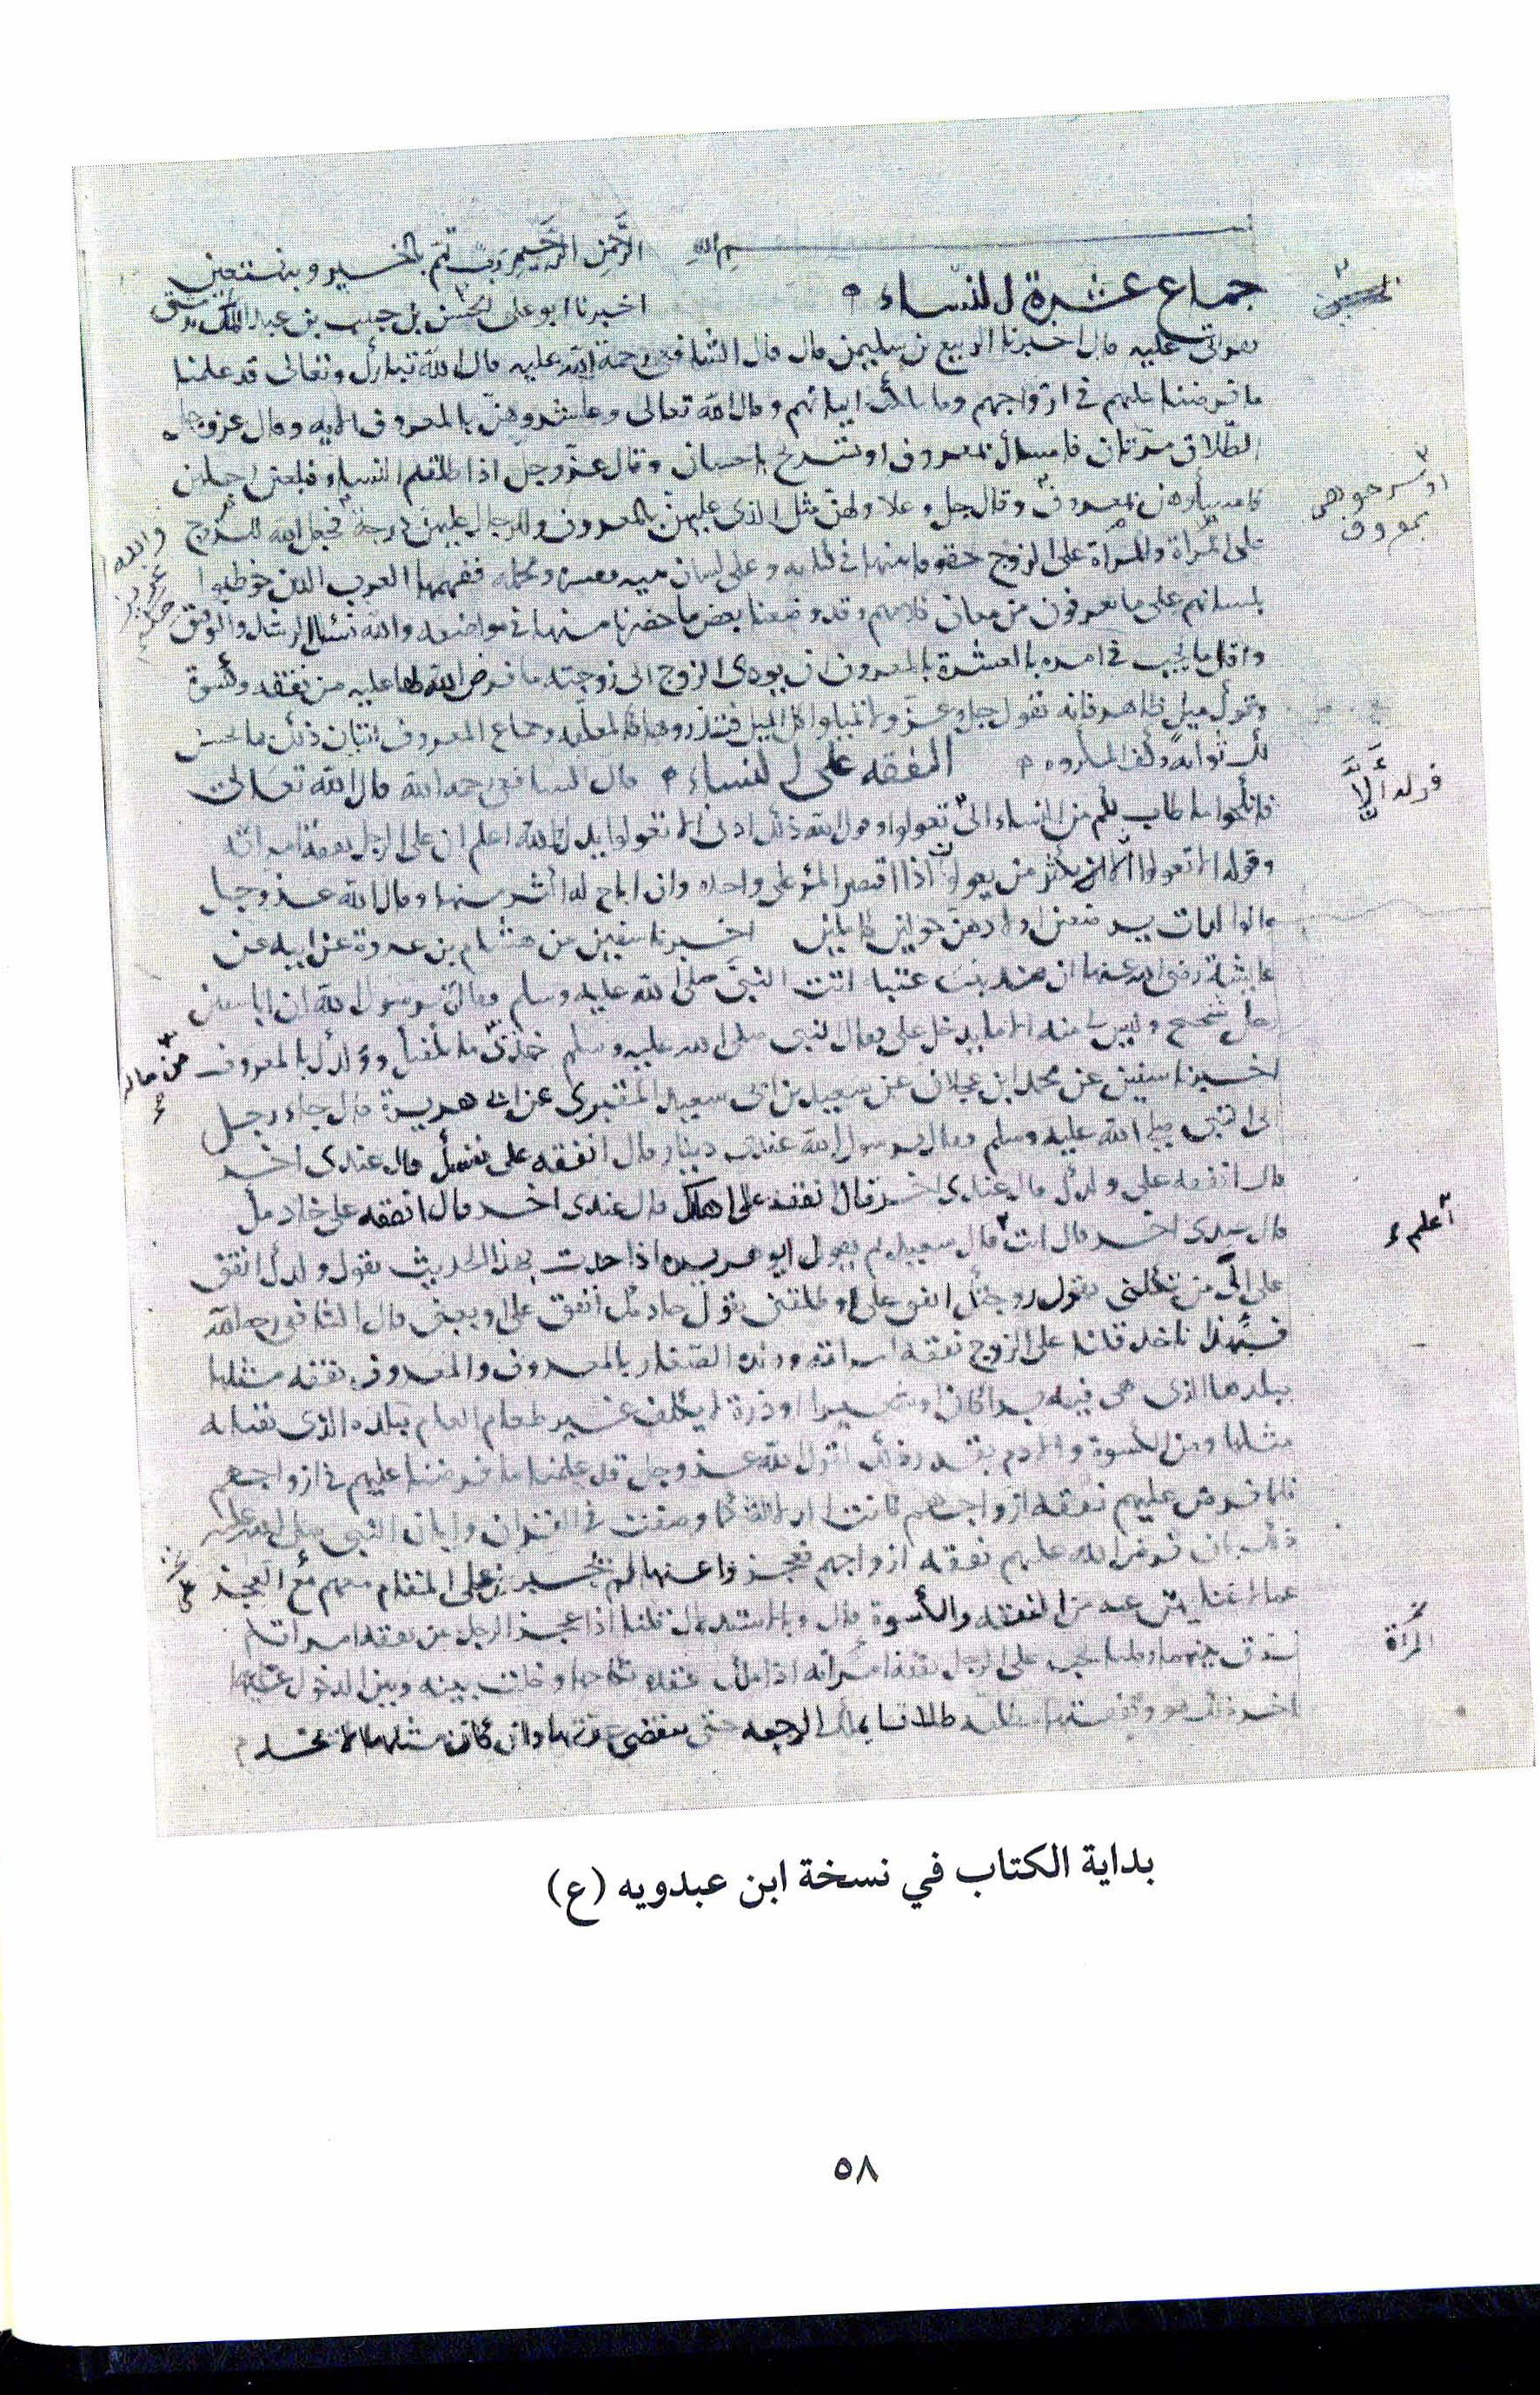 بسم الله الرَّحمنِ الرَّحيمِ رب تمم بالخير وبه نستعين
جماع عشرة النساء اخبرنا ابو على الحسن بن حبيب بن عبد الملك
عليه قال اخبرنا الربيع بن سليمن قال قال الشافعى رحمة الله عليه قال الله تبارك وتعالى قد علمنا
ما فرضنا عليهم فى ازواجهم وما ملكت ايمانهم وقال الله تعالى وعاشروهنّ بالمعروف الايه وقال عز وجل
الطّلاق مرّتان فامساك بمعروف او تسريح باحسان وقال عزّ وجلّ اذا طلقتم النساء فبلغن اجلهن
فامسكوهن بمعروف وقال جل وعلا ولهنّ مثل الذى عليهنّ بالمعروف وللرجال عليهنّ درجة فجعل الله للزوج
على المرأة وللمرأة على الزوج حقوقا بينها فى كتابه وعلى لسان نبيه مفسره ومجمله ففهمها العرب الذين خوطبوا
بلسانهم على ما يعرفون من معانى كلامهم وقد وضعنا بعض ما حضرنا منها فى مواضعه والله نسئل الرشد والتوفيق
واقل ما يجب فى امره بالعشرة بالمعروف ان يودى الزوج الى زوجته ما فرض الله لها عليه من نفقه وكسوة
وترك ميل ظاهر فانه يقول جل وعزّ ولا تميلوا كل الميل فتذروها كالمعلّقه وجماع المعروف اتيان ذلك بما يحسن
لك ثوابه وكف المكروه النفقه على النساء قال الشافعى رحمه الله قال الله تعالى
فانكحوا ما طاب لكم من النساء الى تعولوا وقول الله ذلك ادنى الا تعولوا يدل والله اعلم ان على الرجل نفقة امراته
وقوله الا تعولوا ان لا يكثر من تعولون اذا اقتصر المرؤ على واحده وان اباح له اكثر منها وقال الله عز وجل
والوالدات يرضعن اولادهنّ حولين كاملين اخبرنا سفين عن هشام بن عروة عن ابيه عن
عايشة رضى الله عنها ان هند بنت عتبة اتت النبىّ صلى الله عليه وسلم فقالت يرسول الله ان ابا سفين
رجل شحيح وليس لى منه الا ما يدخل على فقال النبى صلى الله عليه وسلم خذى ما يكفيك وولدك بالمعروف
اخبرنا سفين عن محمد ابن عجلان عن سعيد بن ابى سعيد المقبرى عن ابى هريرة قال جاء رجل
الى النبى صلى الله عليه وسلم فقال يرسول الله عندى دينار قال انفقه على نفسك قال عندى اخر
قال انفقه على ولدك قال عندى اخر قال انفقه على اهلك قال عندى اخر قال انفقه على خادمك
قال عندى اخر قال انت قال سعيد ثم يقول ابو هريره اذا حدث بهذا الحديث يقول ولدك انفق
على الى من تكلنى تقول زوجتك انفق على او طلقنى يقول خادمك انفق على او بعنى قال الشافعى رحمه الله
فبهذا ناخذ قلنا على الزوج نفقة امراته وولده الصغار بالمعروف والمعروف نفقه مثلها
ببلدها الذى هى فيه برا كان او شعيرا او ذرة لا يكلف غير طعام العام ببلده الذى يقتاته
مثلها ومن الكسوة والادم بقدر ذلك لقول الله عز وجل قد علمنا ما فرضنا عليهم فى ازواجهم
فلما فرض عليهم نفقه ازواجهم كانت الدلاله كما وصفت فى القران وابان النبى صلى الله عليه
ذلك بان فرض الله عليهم نفقه ازواجهم فعجزوا عنها لم يجبرن على المقام معهم مع العجز
عما لا غنا بهن عنه من النفقه والكسوة قال وبالاستدلال قلنا اذا عجز الرجل عن نفقه امراته
فرق بينهما وقلنا يجب على الرجل نفقة امراته اذا ملك عقده نكاحها وخلت بينه وبين الدخول عليها
اخر ذلك هو وينفق مطلقه طلاقا يملك الرجعه حتى تنقضى عدتها وان كان مثلها لا تخدم
او سرحوهن
بمعروف
قوله ألّا
من ماله
أعلم
المرأة
بداية الكتاب في نسخة ابن عبدويه (ع)
٥٨